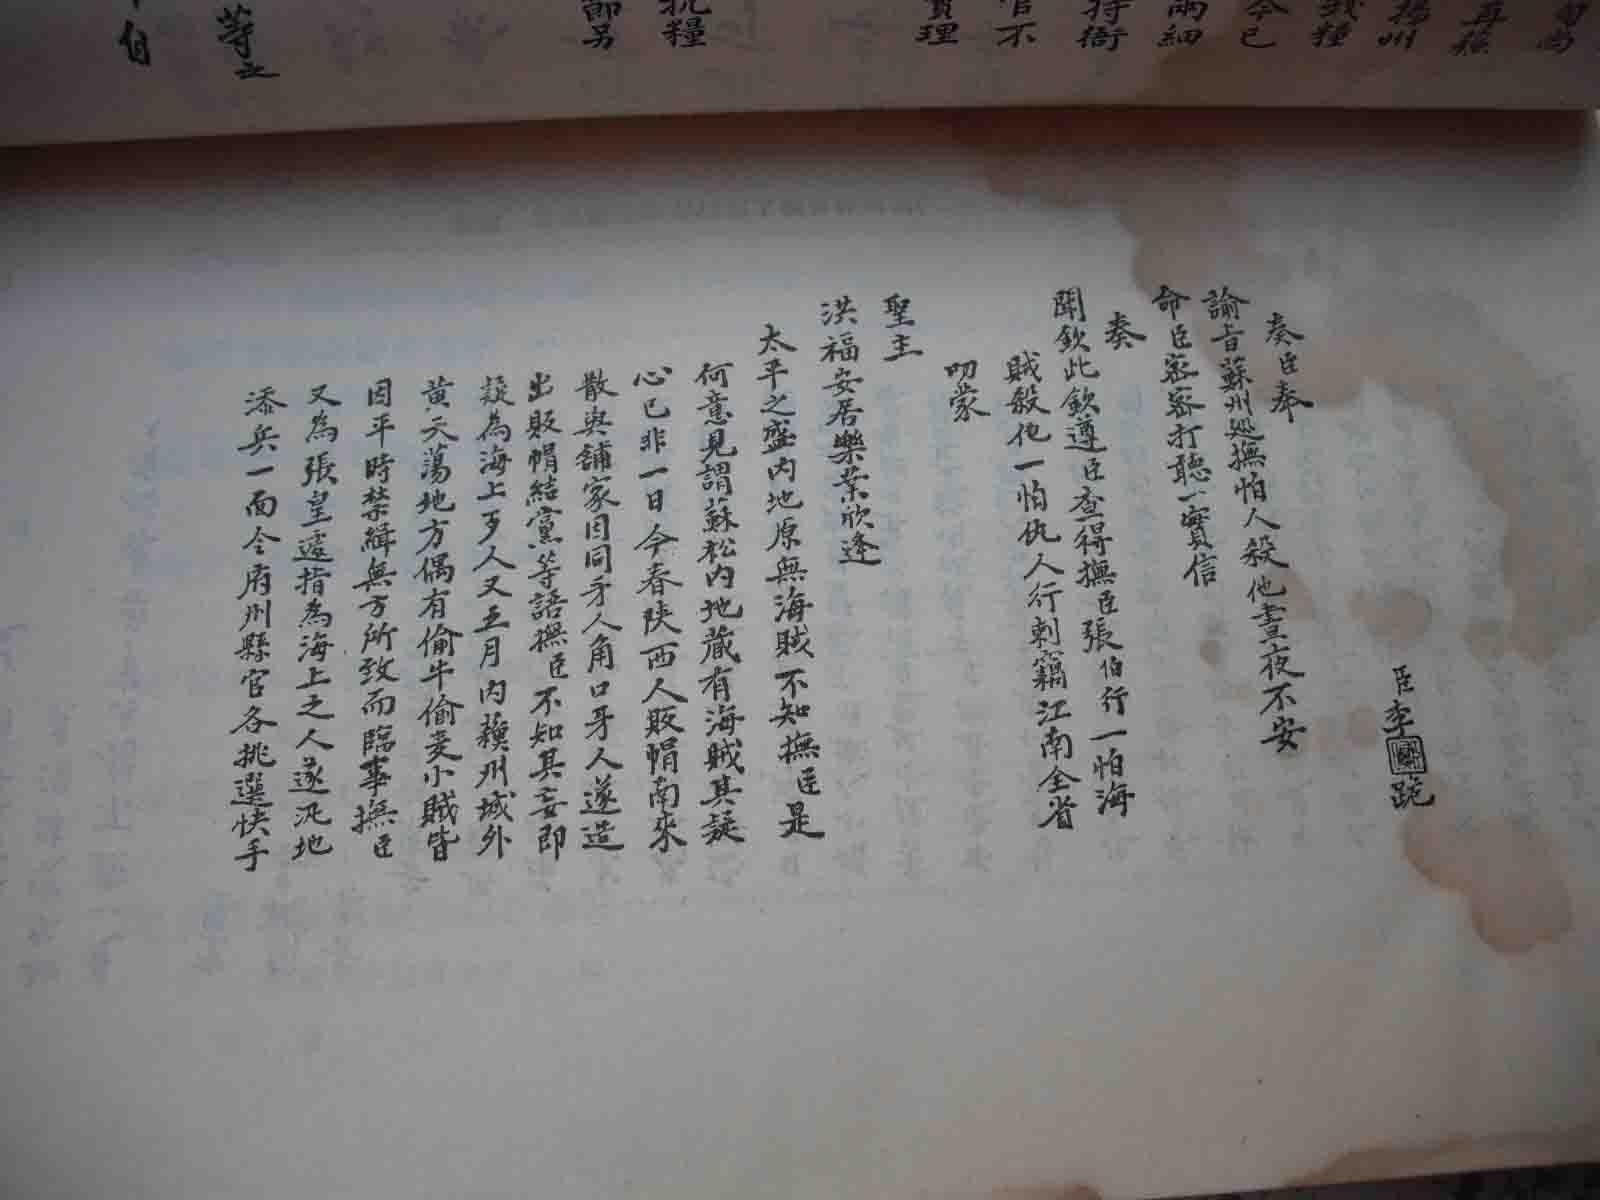 臣李煦跪
奏臣奉
諭旨蘇州巡撫怕人殺他晝夜不安
命臣密密打聽一實信
奏
聞欽此欽遵臣查得撫臣張伯行一怕海
賊殺他一怕仇人行刺竊江南全省
叨蒙
聖主
洪福安居樂業欣逢
太平之盛內地原無海賊不知撫臣是
何意見謂蘇松內地藏有海賊其疑
心已非一日今春陝西人販帽南來
散與舖家因同牙人角口牙人遂造
出販帽結黨等語撫臣不知其妄即
疑為海上歹人又五月內蘇州城外
黃天蕩地方偶有偷牛偷麥小賊皆
因平時禁緝無方所致而臨事撫臣
又為張皇遽指為海上之人遂汛地
添兵一面令府州縣官各挑選快手
再
揚州
錢糧
今已
兩細
持衙
官不
實理
抗糧
節另
等之
伯